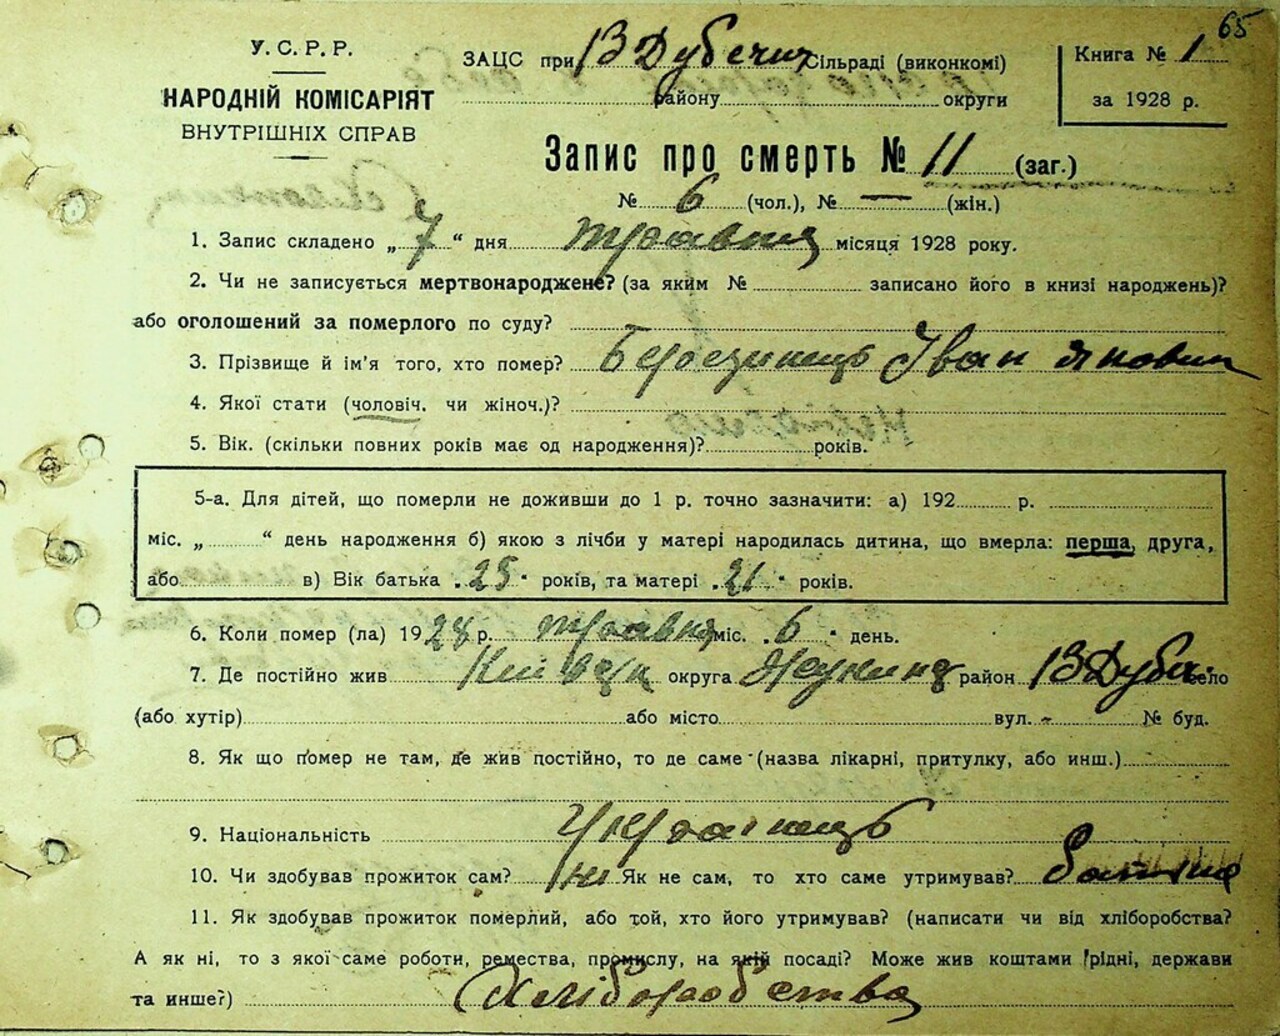 65
У. С. Р. Р.
НАРОДНІЙ КОМІСАРІЯТ
ВНУТРІШНІХ СПРАВ
ЗАЦС при В Дубечні Сільраді (виконкомі)
району округи
Книга № 1
за 1928 р.
Запис про смерть № 11 (заг.)
№ 6 (чол.), № — (жін.)
1. Запис складено „ 7 “ дня травня місяця 1928 року.
2. Чи не записується мертвонароджене? (за яким № записано його в книзі народжень)?
або оголошений за померлого по суду?
3. Прізвище й ім'я того, хто помер? Іван Янович
4. Якої стати (чоловіч. чи жіноч.)?
5. Вік. (скільки повних років має од народження)? років.
5-а. Для дітей, що померли не доживши до 1 р. точно зазначити: а) 192 р.
міс. „ “ день народження б) якою з лічби у матері народилась дитина, що вмерла: перша, друга,
або в) Вік батька 25 років, та матері 21 років.
6. Коли помер (ла) 1928 р. травня міс. 6 день.
7. Де постійно жив округа район В Дубе село
(або хутір) або місто вул. № буд.
8. Як що помер не там, де жив постійно, то де саме (назва лікарні, притулку, або инш.)
9. Національність Українець
10. Чи здобував прожиток сам? ні Як не сам, то хто саме утримував? батько
11. Як здобував прожиток померлий, або той, хто його утримував? (написати чи від хліборобства?
А як ні, то з якої саме роботи, ремества, промислу, на якій посаді? Може жив коштами рідні, держави
та инше?) Хліборобства